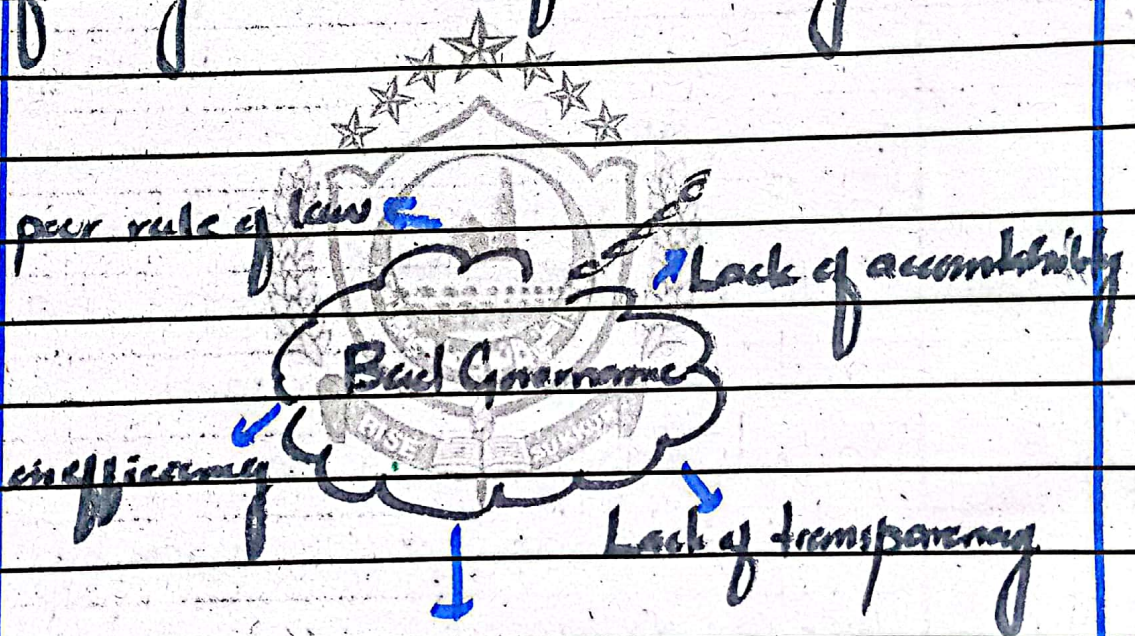 poor rule of law
Lack of accountability
Bad Governance
RISE
inefficiency
Lack of transparency